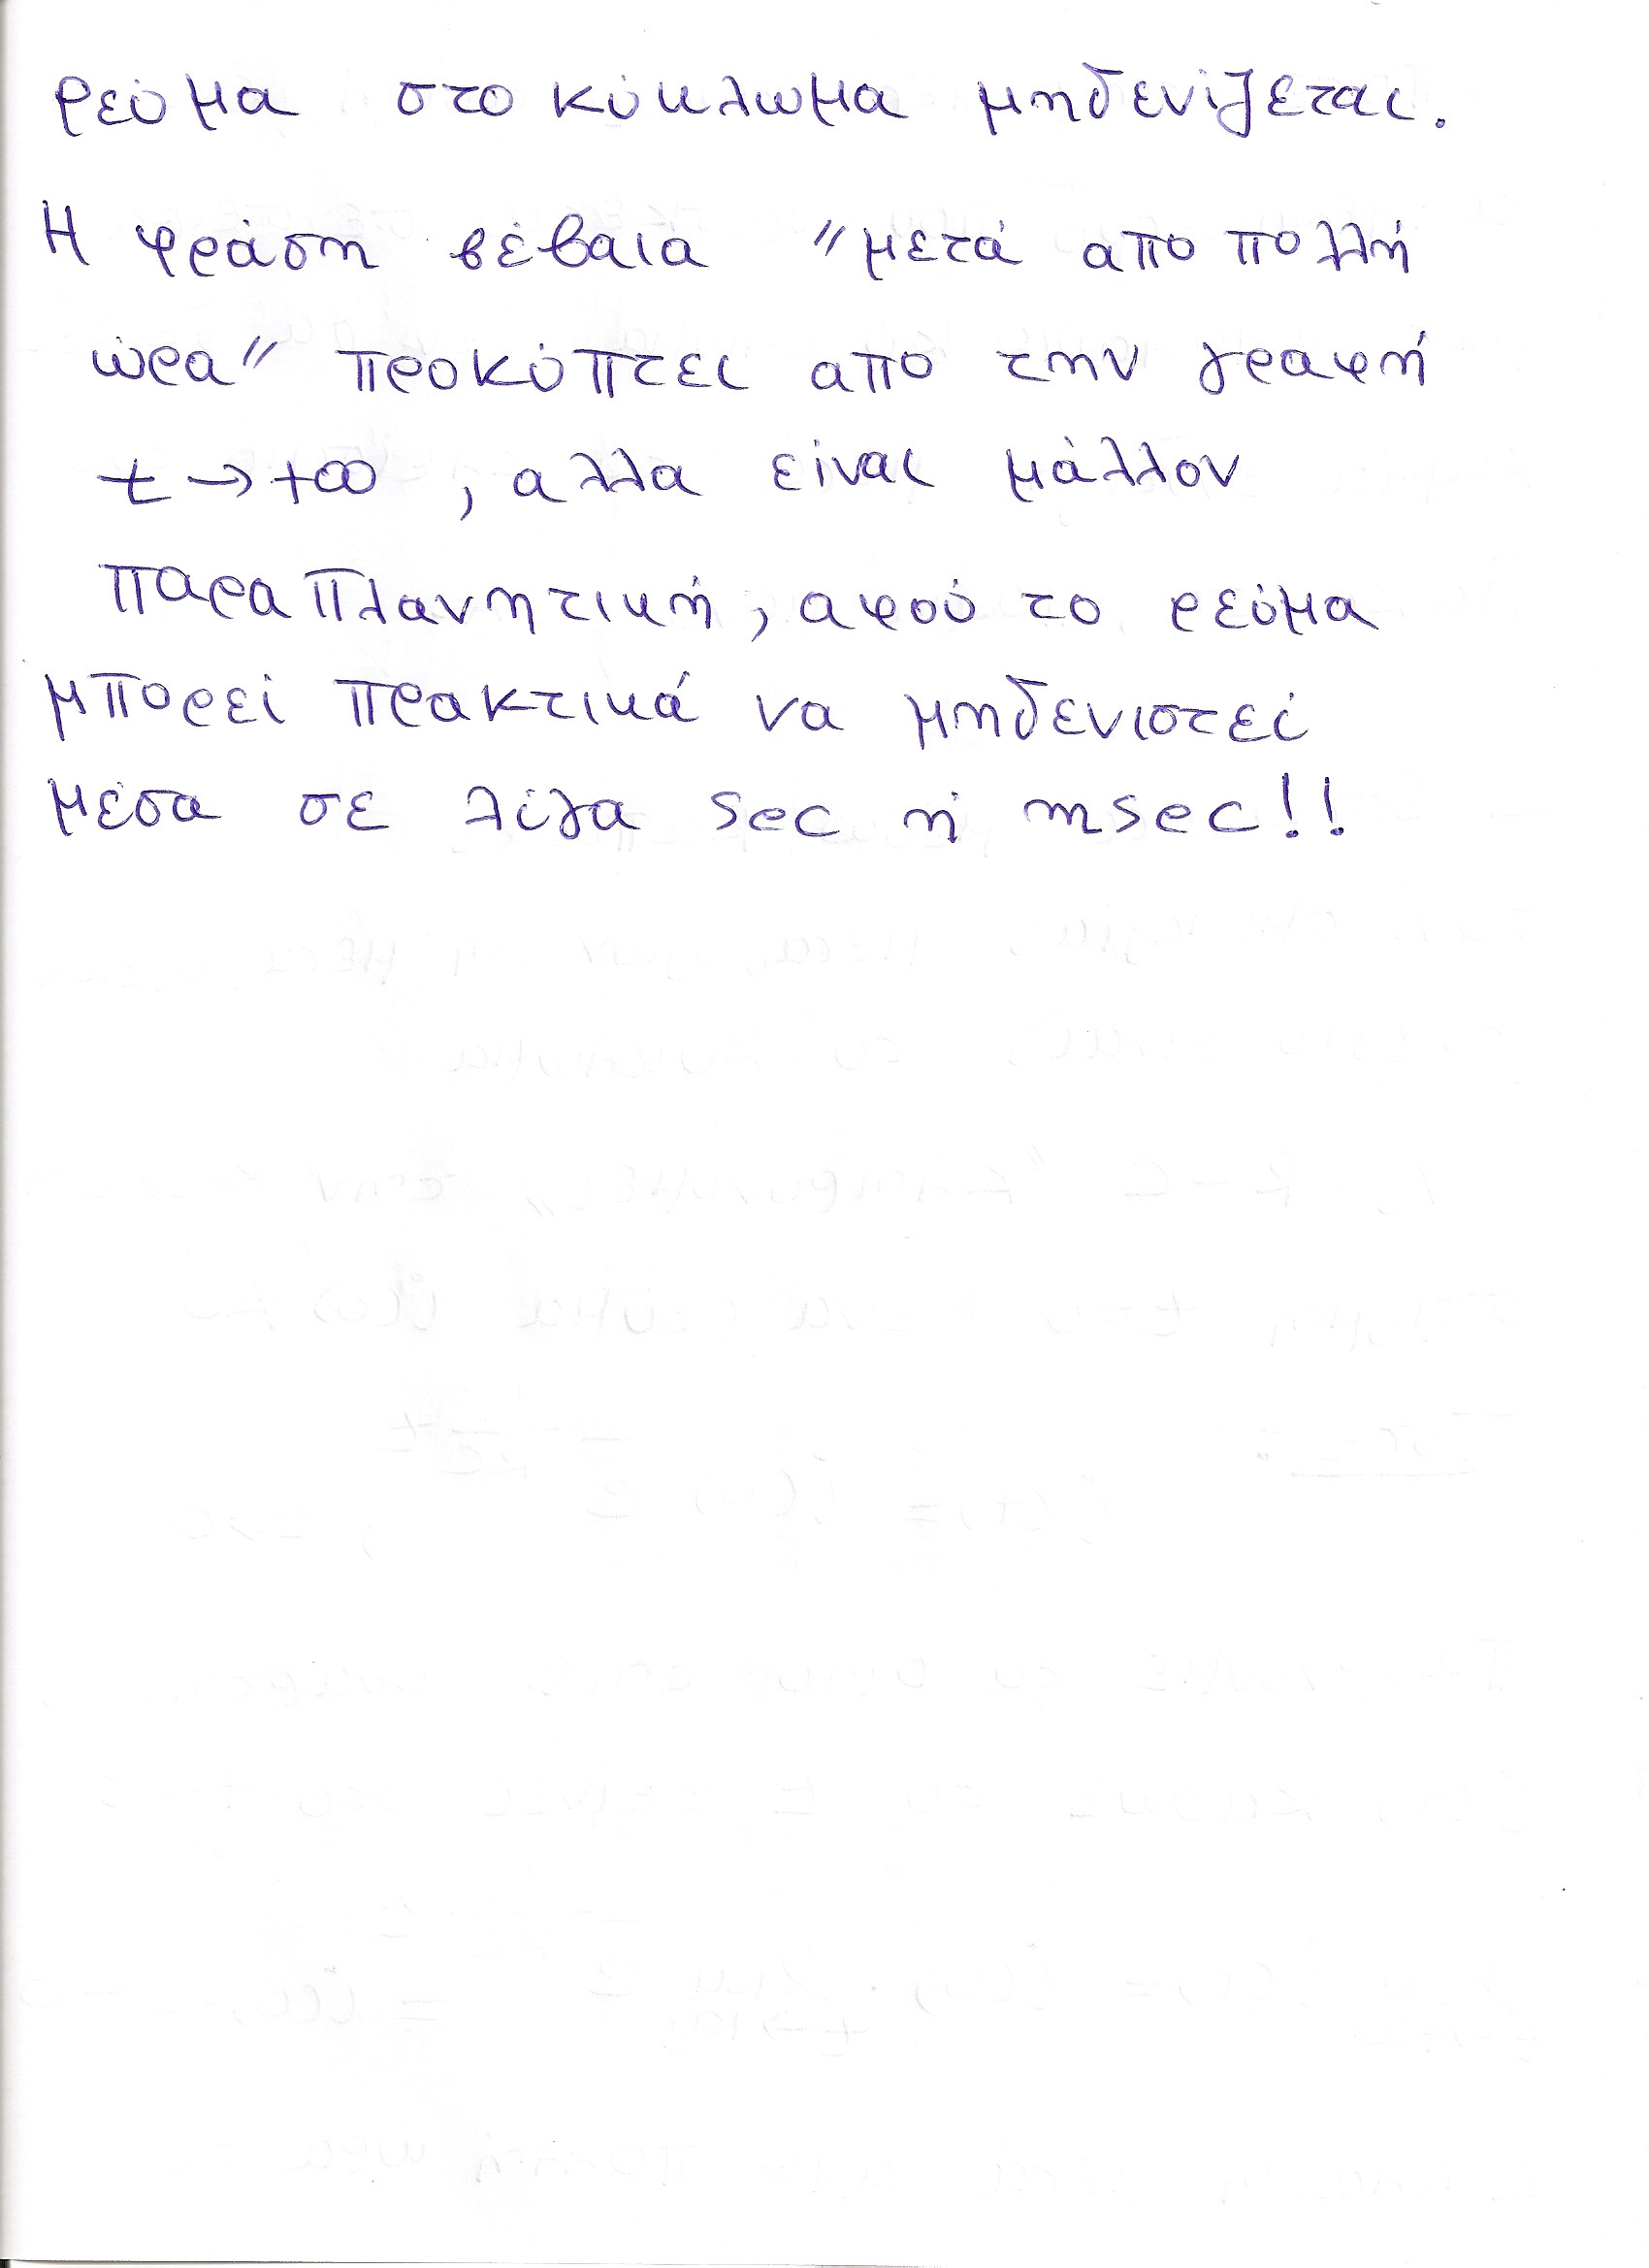 ρεύμα στο κύκλωμα μηδενίζεται.
Η φράση βέβαια "μετά απο πολλή
ώρα" προκύπτει απο την γραφή
t → +∞ , αλλα είναι μάλλον
παραπλανητική, αφού το ρεύμα
μπορεί πρακτικά να μηδενιστεί
μέσα σε λίγα sec ή msec!!